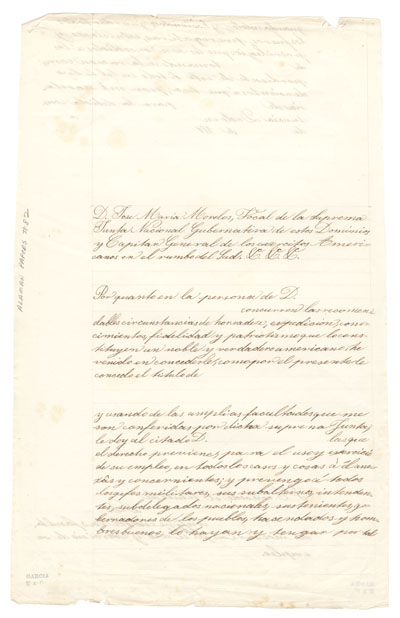 D. José Maria Morelos, Vocal de la Suprema
Junta Nacional Gubernativa de estos Dominios
y Capitan General de los exercitos Ameri-
canos en el rumbo del Sud, &. &. &.
Por quanto en la persona de D.
concurren las recomen-
dables circunstancias de honradez, expedicion, cono-
cimientos, fidelidad y patriotismo que lo cons-
tituyen un noble y verdadero americano: he
venido en concederle, como por el presente le
concedo el titulo de
y usando de las amplias facultades que me
son conferidas por dicha suprema Junta,
le doy al citado D. las que
el derecho previene, para el uso y exercicio
de su empleo, en todos los casos y cosas á él ane-
xâs y concernientes; y prevengo á todos
los gefes militares, sus subalternos, intenden-
tes, subdelegados nacionales, sus tenientes, go-
bernadores de los pueblos, hacendados y hom-
bres buenos, le hayan y tengan por tal
ALAMAN PAPERS #82